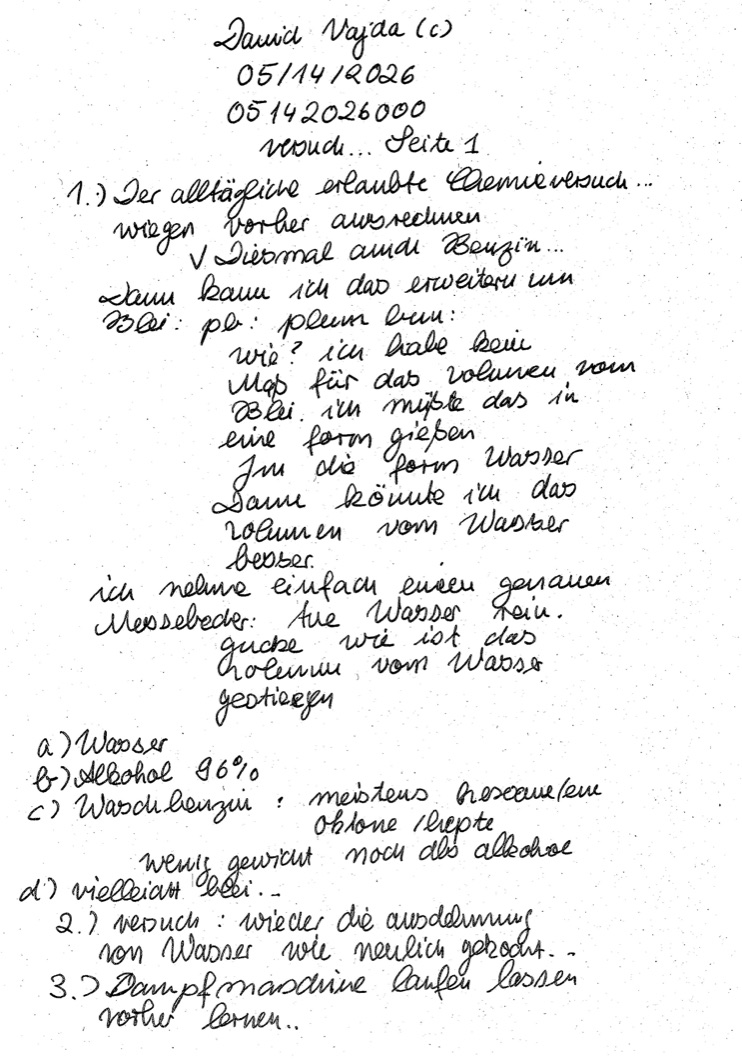 David Vajda (c)
05/14/2026
05142026000
versuch... Seite 1
1.) Der alltägliche erlaubte Chemieversuch...
wiegen vorher ausrechnen
V Diesmal auch Benzin...
Dann kann ich das erweitern um
Blei: pb: plum bum:
wie? ich habe kein
Maß für das volumen vom
Blei. ich müßte das in
eine form gießen
In die form Wasser
Dann könnte ich das
volumen vom Wasser
besser.
ich nehme einfach einen genauen
Messebecher: tue Wasser rein.
gucke wie ist das
volumen vom Wasser
gestiegen
a) Wasser
b) Alkohol 96%
c) Waschbenzin : meistens
oktane / hepte
wenig gewicht noch als alkohol
d) vielleicht blei...
2.) versuch : wieder die ausdehnung
von Wasser wie neulich gekocht...
3.) Dampfmaschine laufen lassen
vorher lernen..